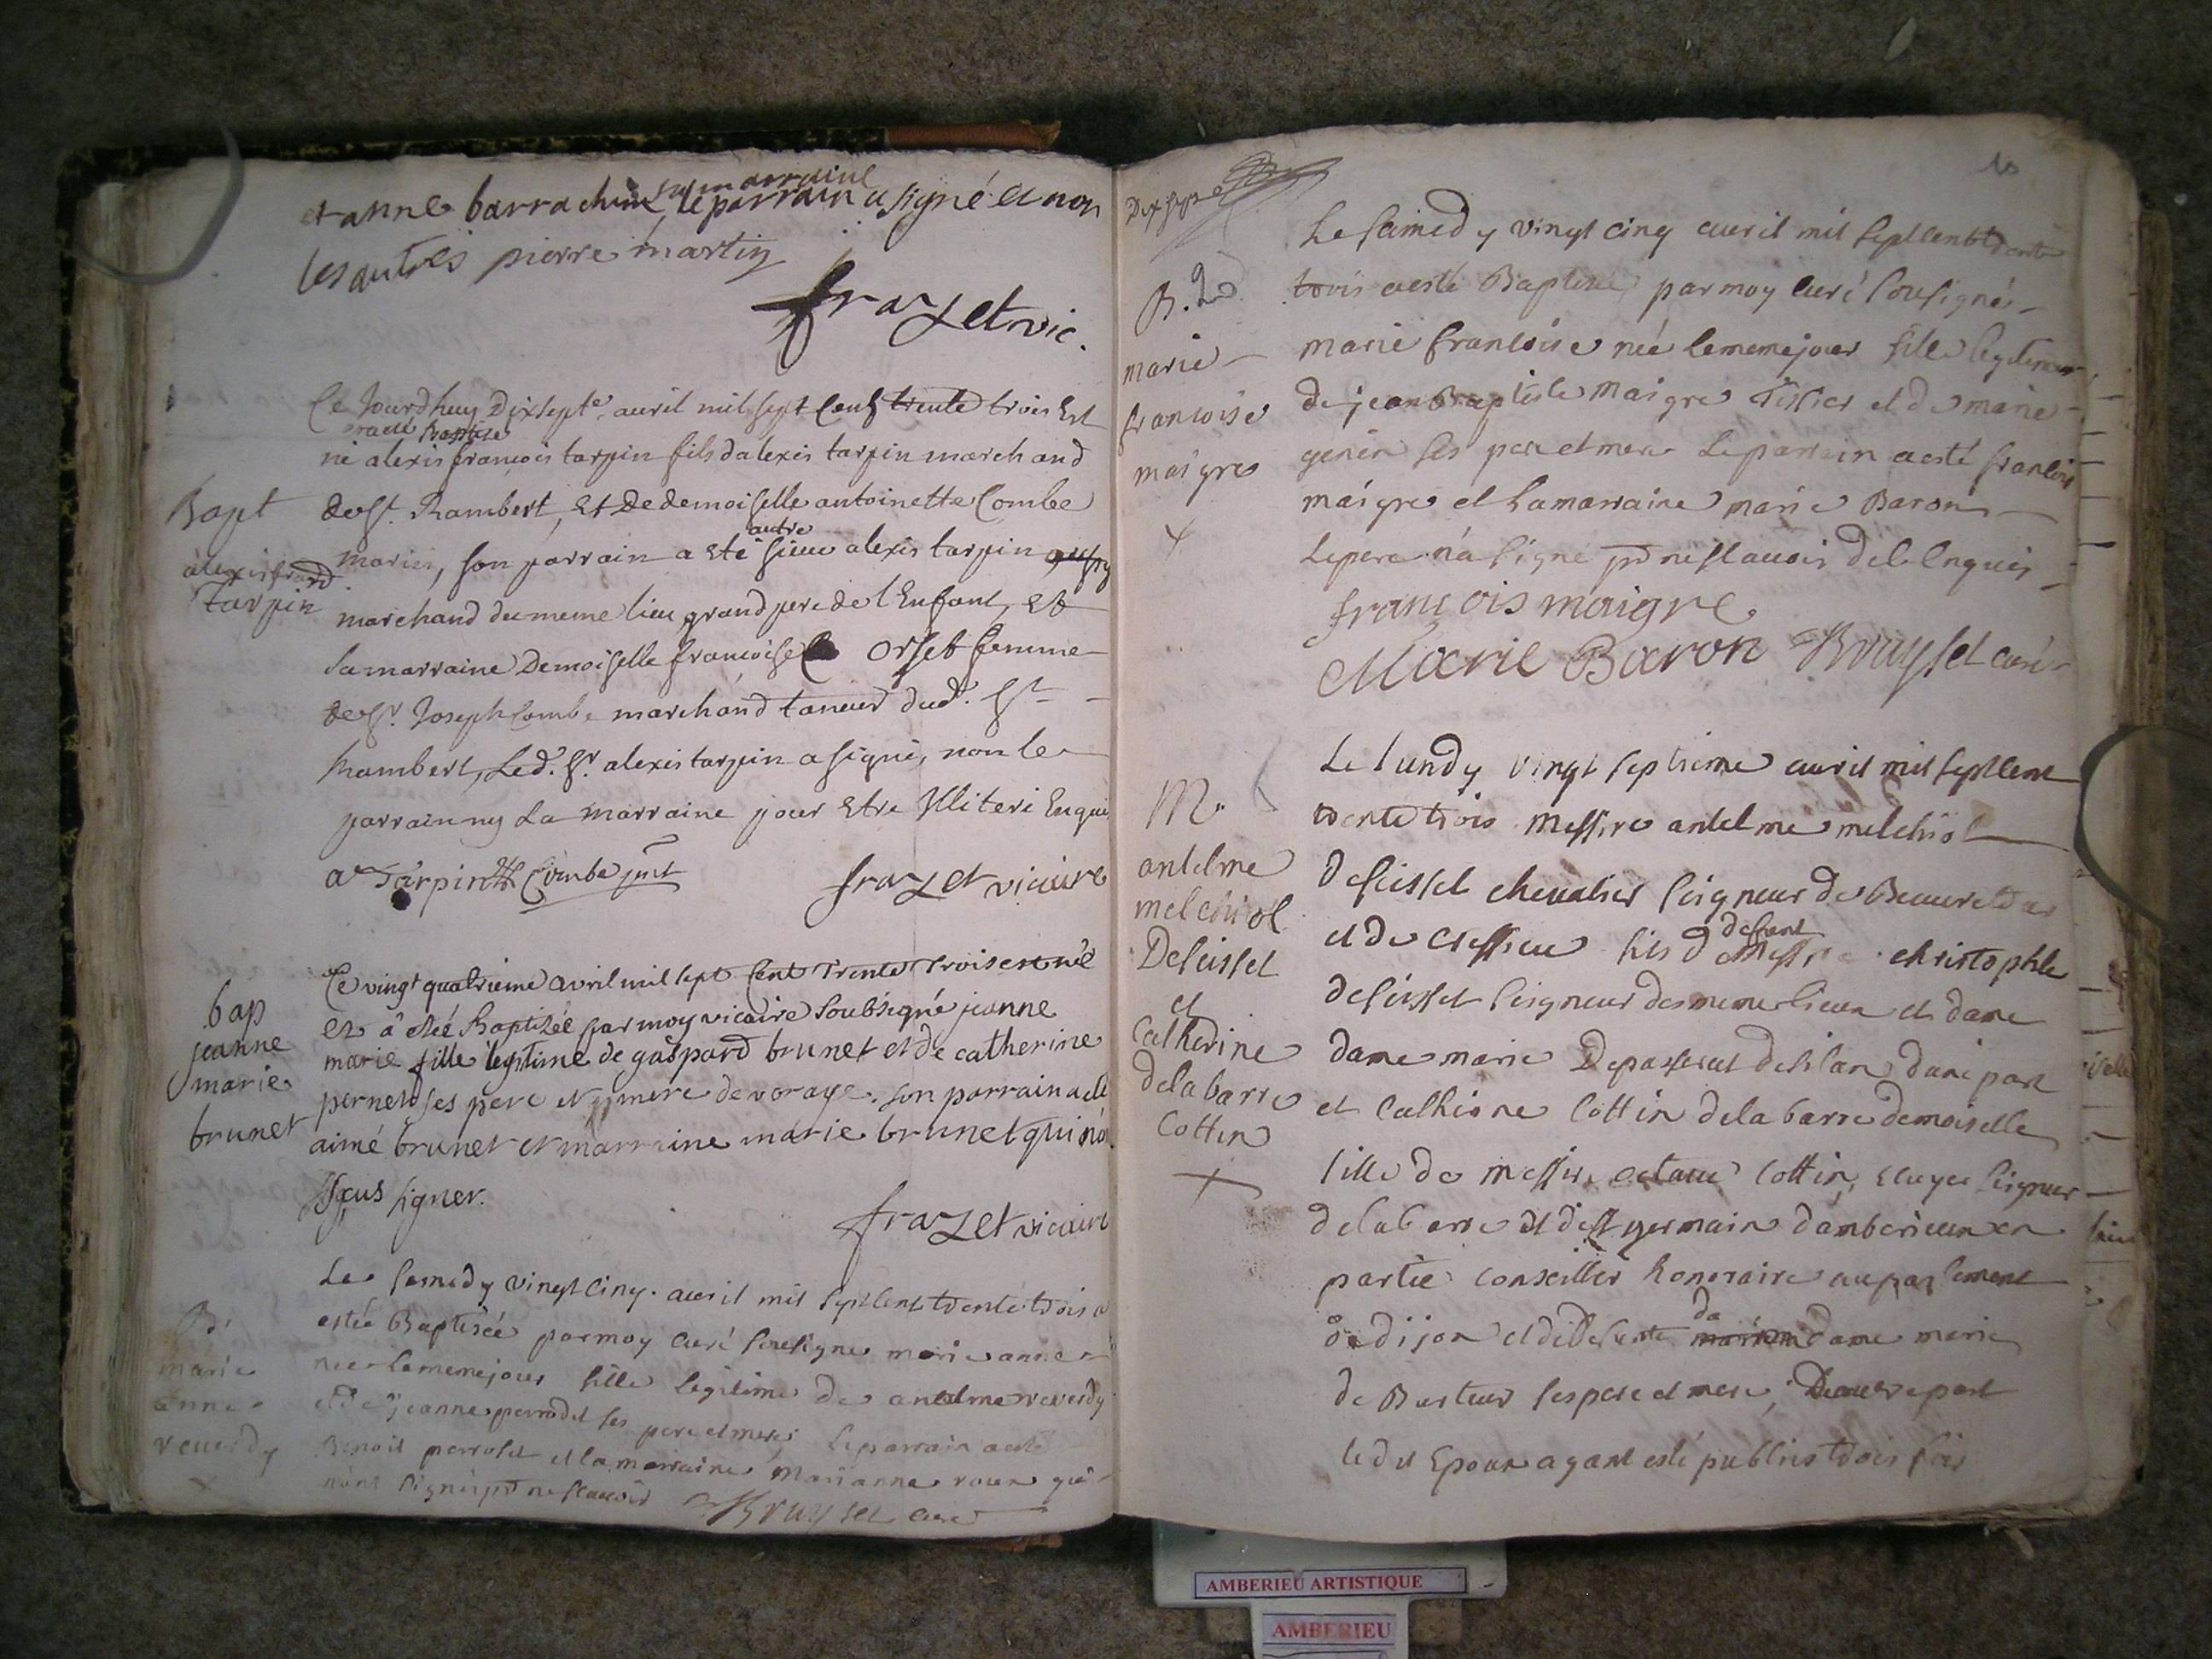 et anne barrachin sa marraine le parrain a signé et non
les autres pierre martin
frazet vic.
Ce Jourdhuy Dixsepte. auril mil sept Cent trente trois Est
et a eté Baptisé
né alexis françois tarpin fils dalexis tarpin marchand
Bapt
alexis
tarpin
de St. Rambert, Et de demoiselle antoinette Combe
mariés, son parrain a Eté autre sieur alexis tarpin
marchand du meme lieu grand pere de l'Enfant, Et
sa marraine Demoiselle francoise orset femme
de Sr. Joseph Combe marchand taneur dud. St
Rambert, Led. Sr. alexis tarpin a signé, non le
parrain ny La marraine pour Etre Illiteré Enquis
a Tarpin Combe
frazet vicaire
bap
jeanne
marie
brunet
Ce vingt quatrieme avril mil sept Cent Trente Trois est née
et a étéé Baptisée par moy vicaire soubsigné jeanne
marie fille legitime de gaspard brunet et de catherine
pernet ses pere et mere de vorage. son parrain a eté
aimé brunet et marraine marie brunet qui n'o
sçus signer.
frazet vicaire
B.
marie
anne
reuerdy
Le samedy vingt cinq auril mil sept cent trente trois a
estée Baptisée par moy curé sousigné marie anne
née le meme jour fille legitime de antelme reverdy
et de jeanne perrodet ses pere et mere; le parrain a esté
Benoit perroset et la marraine Marianne roux qui
n'ont signés pr ne scauoir Bruyset curé
Dix sept
B.
marie
francoise
maigre
Le samedy vingt cinq auril mil sept cent trente
trois a esté Baptisée par moy curé sousigné
marie francoise née le meme jour fille legitime
de jean Baptiste Maigre Tissier et de marie
genin ses pere et mere Le parrain a esté francois
maigre et la marraine marie Baron
Le pere n'a signé pr ne scauoir de ce enquis
françois maigre
Marie Baron Bruyset curé
M.
antelme
melchiol
Deseissel
et
Catherine
de la barre
Cottin
Le lundy vingt septieme auril mil sept cent
trente trois messire antelme melchiol
deseissel chevalier seigneur de Beauretour
et de cressieu fils de deffunt messire christophle
deseissel seigneur des meme lieux et dame
dame marie Depasserat desilan dune part
et Catherine Cottin de la barre demoiselle
fille de messire octaue Cottin, ecuyer seigneur
de la barre et de st germain d'amberieux en
partie conseiller honoraire au parlement
de dijon et de dame marie
de Berteur ses pere et mere, D'autre part
le dit Epoux ayant esté publiés trois fois
AMBERIEU ARTISTIQUE
AMBERIEU